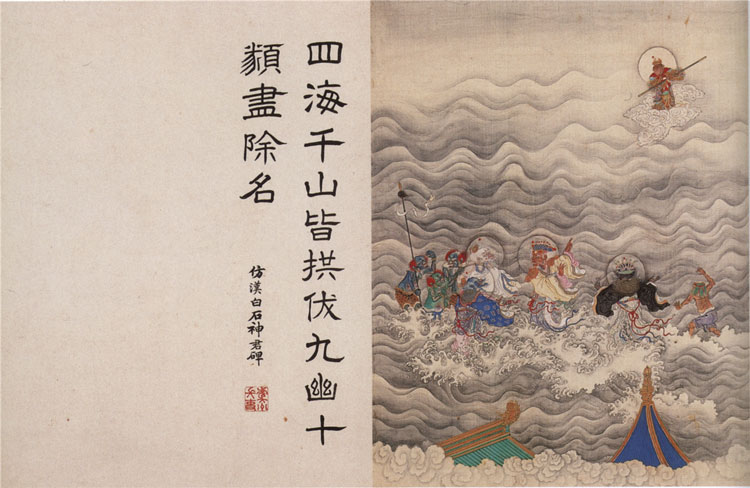 四海千山皆拱伏九幽十
類盡除名
仿漢白石神君碑